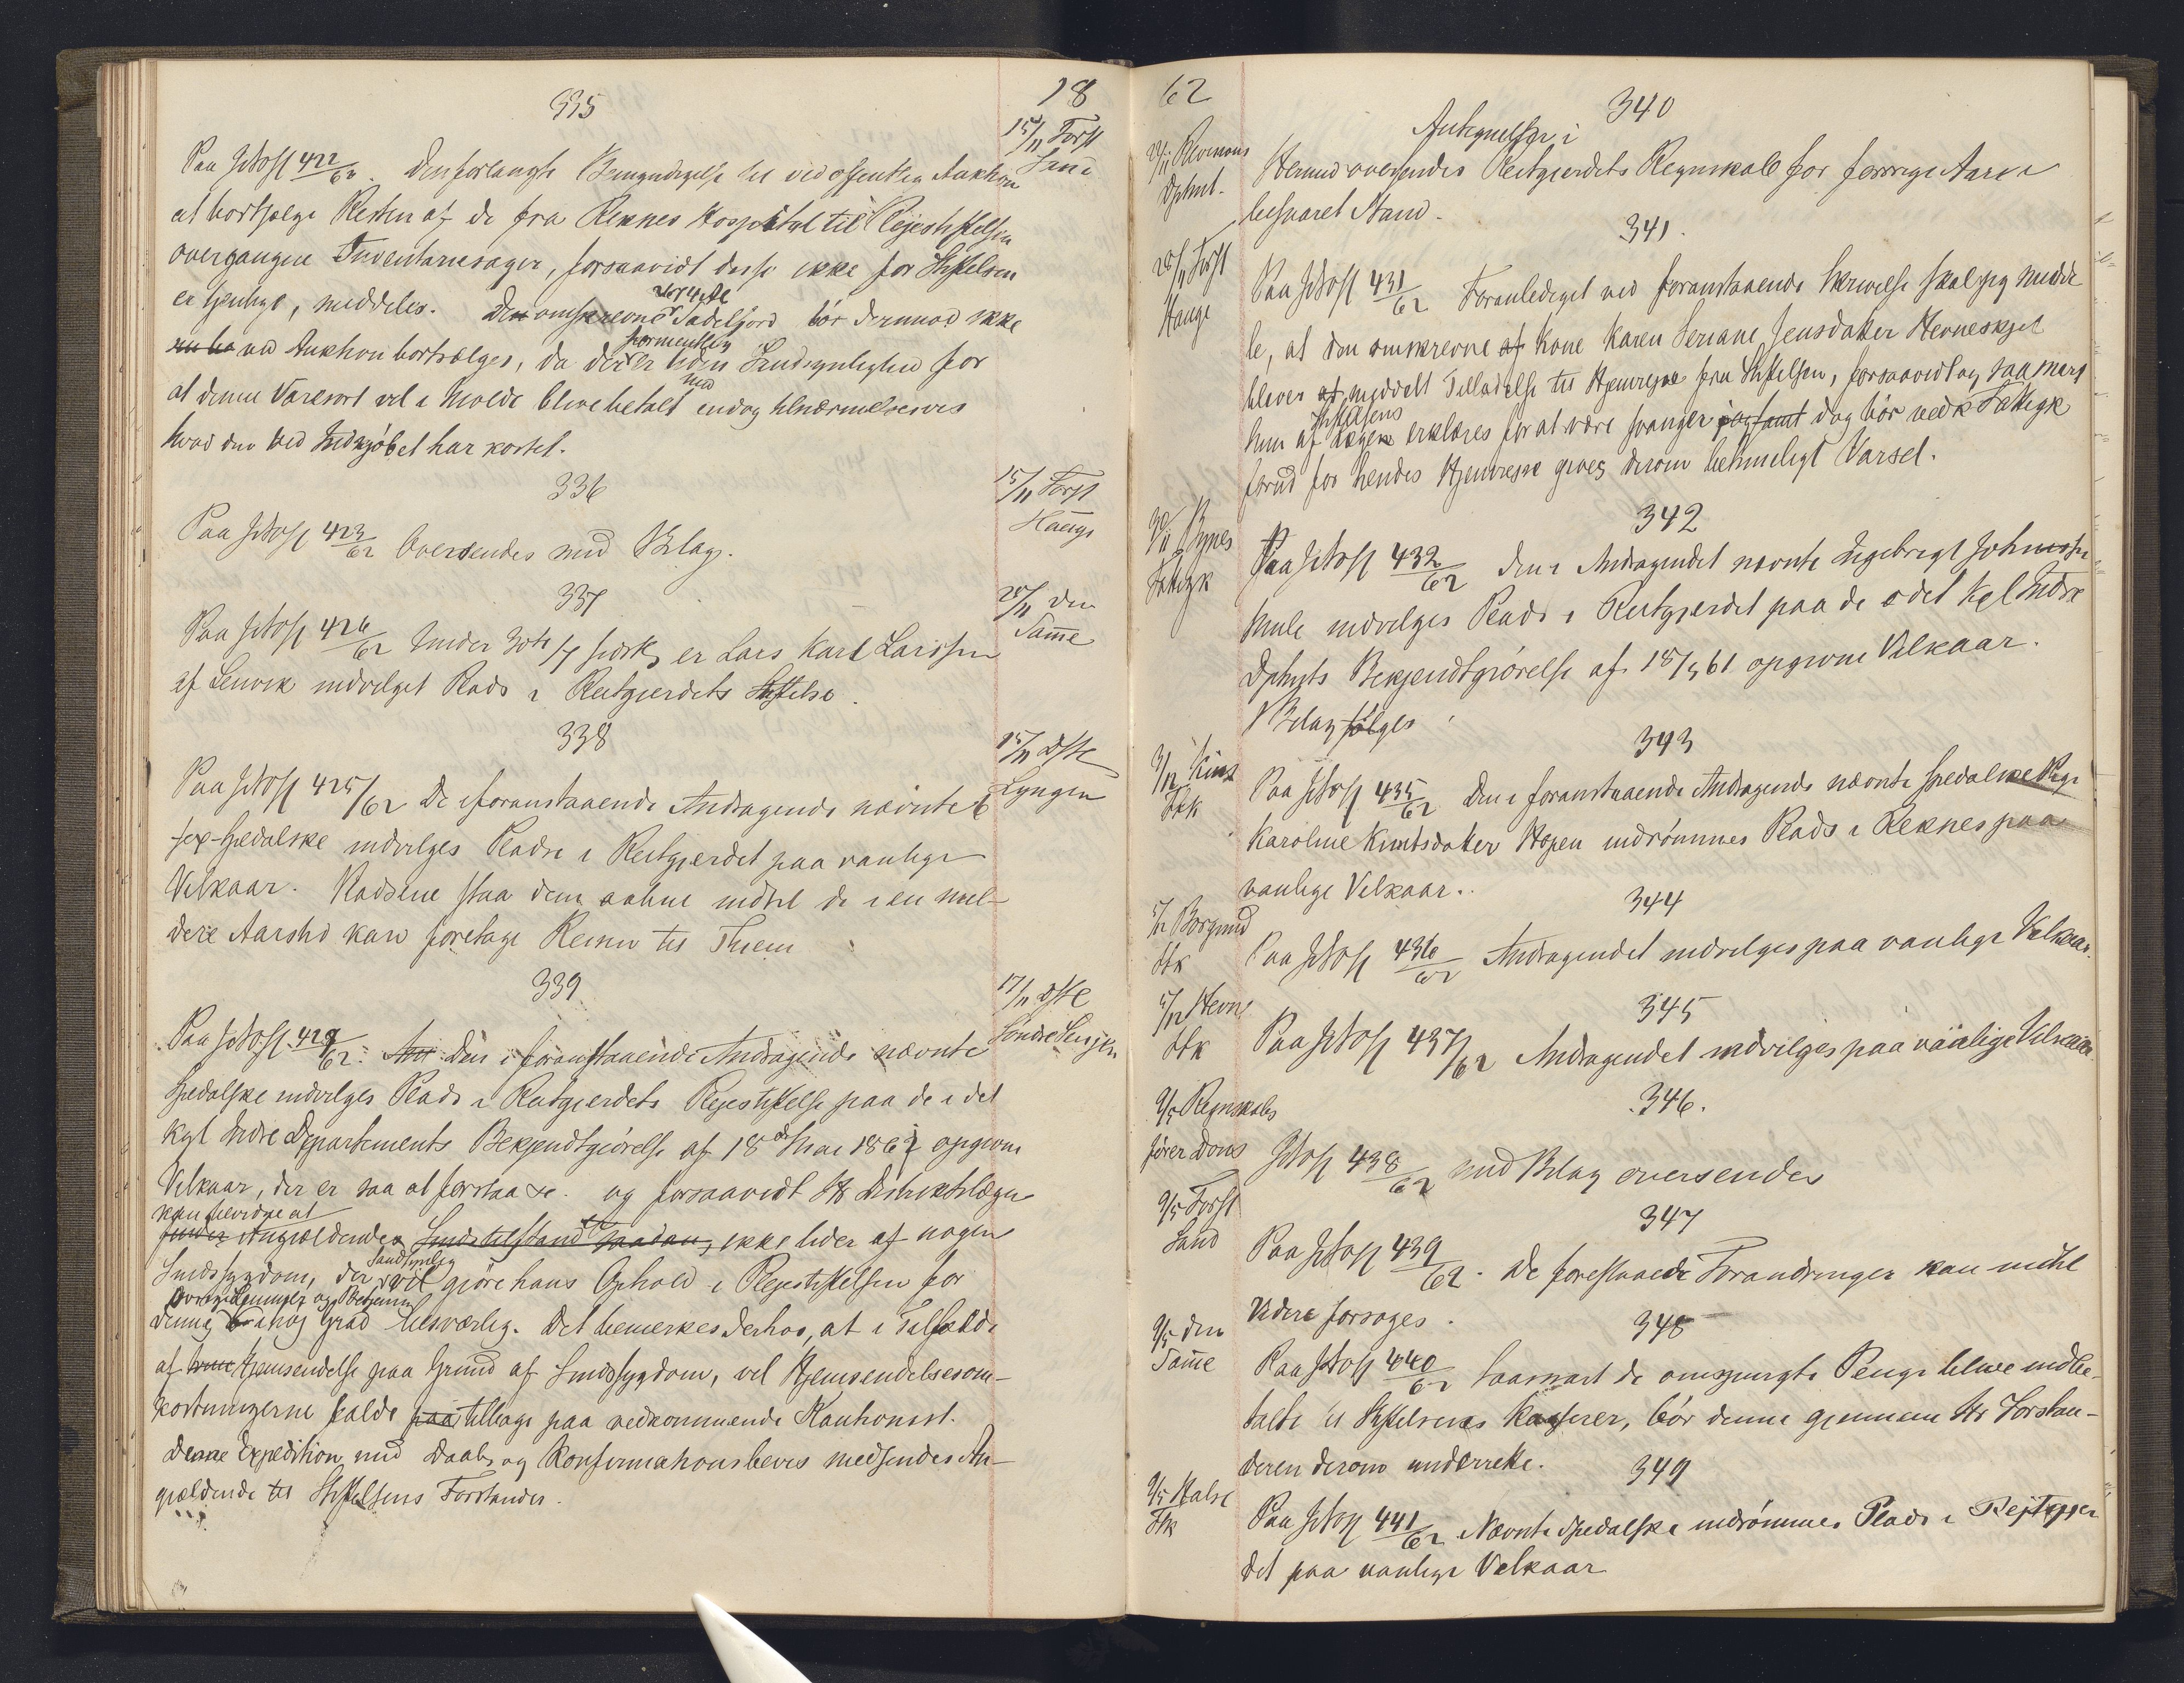 18
335
15/11 Forst
Sand
Paa JNo 422/62. Den forlangte Bemyndigelse til ved offentlig Auktion
at bortsælge Resten af de fra Reknes Hospital til Plejestiftelsen
overgangne Inventariesager, forsaavidt disse ikke for Stiftelsen
er tjenlige, meddeles. Den omskrevne Sadelgjord bør derimod ikke
ved Auktion bortsælges, da der er formentlig liden Sandsynlighed for
at denne Varesort vil i Molde blive betalt med endog tilnærmelsesvis
hvad den ved Indkjøbet har kostet.
336
15/11 Forst
Hauge
Paa JNo 423/62 Oversendes med Bilag.
337
28/11 den
Samme
Paa JNo 426/62 Under 30te/7 er Lars Karl Larssen
af Lenvik indvilget Plads i Reitgjerdets Stiftelse.
338
15/11 Dste
Lyngen
Paa JNo 425/62 De i foranstaaende Andragende nævnte 6
sex spedalske indvilges Pladse i Reitgjerdet paa vanlige
Vilkaar. Pladsene staa dem aabne indtil de i en mil-
dere Aarstid kan foretage Reisen til Thjem
339
17/11 Dste
Søndre Senjen
Paa JNo 429/62. Den i foranstaaende Andragende nævnte
Spedalske indvilges Plads i Reitgjerdets Plejestiftelse paa de i det
Kgl Indre Departements Bekjendtgjørelse af 18de Mai 1861 opgivne
Vilkaar, der er saa at forstaa &c. og forsaavidt Hr Distriktslægen
kan bevidne at
finder Angjældendes Sindstilstand saadan, ikke lider af nogen
Sindssygdom, der sandsynlig vil gjøre hans Ophold i Plejestiftelsen for
dennes Omgivninger og Betjening i høj Grad besværlig. Det bemerkes derhos, at i Tilfælde
af Hjemsendelse paa Grund af Sindssygdom, vil Hjemsendelsesom-
kostningerne falde tilbage paa vedkommende Kautionist.
Denne Expedition med Daabs og Konfirmationsbevis medsendes An-
gjældende til Stiftelsens Forstander.
62
340
Revisions
Dptmt.
Antegnelser i
Hermed oversendes Reitgjerdets Regnskab for forrige Aar i
besvaret Stand.
341.
28/11 Forst
Hauge
Paa JNo 431/62 Foranlediget ved foranstaaende Skrivelse skal jeg medde
le, at den omskrevne Kone Karen Seriane Jensdatter Hevneskjel
bliver meddelt Tilladelse til Hjemrejse fra Stiftelsen, forsaavidt og saasnart
hun af Stiftelsens Læge erklæres for at være svanger dog bør vedk Fattigk
forud for hendes Hjemrejse gives derom betimeligt Varsel.
342
30/11 Bynes
Fattigk
Paa JNo 432/62 Den i Andragendet nævnte Ingebrigt Johnssen
Mule indvilges Plads i Reitgjerdet paa de i det Kgl Indre
Dptmts Bekjendtgjørelse af 18/5 61 opgivne Vilkaar.
1 Bilag følger
343
3/12 Kinn
Ftk
Paa JNo 435/62 Den i foranstaaende Andragende nævnte spedalske Pige
Karoline Knutsdatter Hopen indrømmes Plads i Reknes paa
vanlige Vilkaar.
344
5/12 Borgund
Ftk
Paa JNo 436/62 Andragendet indvilges paa vanlige Vilkaar.
345
5/12 Hevne
Ftk
Paa JNo 437/62 Andragendet indvilges paa vanlige Vilkaar
346.
Regnskabs
fører Dons
JNo 438/62 med Bilag oversendes
347
Forst
Sand
Paa JNo 439/62. De foreslaaede Forandringer kan indtil
Videre forsøges.
348
den
Samme
Paa JNo 440/62 Saasnart de omspurgte Penge blive indbe-
talte til Stiftelsens Kasserer, bør denne gjennem Hr Forstan-
deren derom underrette.
349
Halse
Ftk
Paa JNo 441/62 Nævnte Spedalske indrømmes Plads i Rejtgjer
det paa vanlige Vilkaar